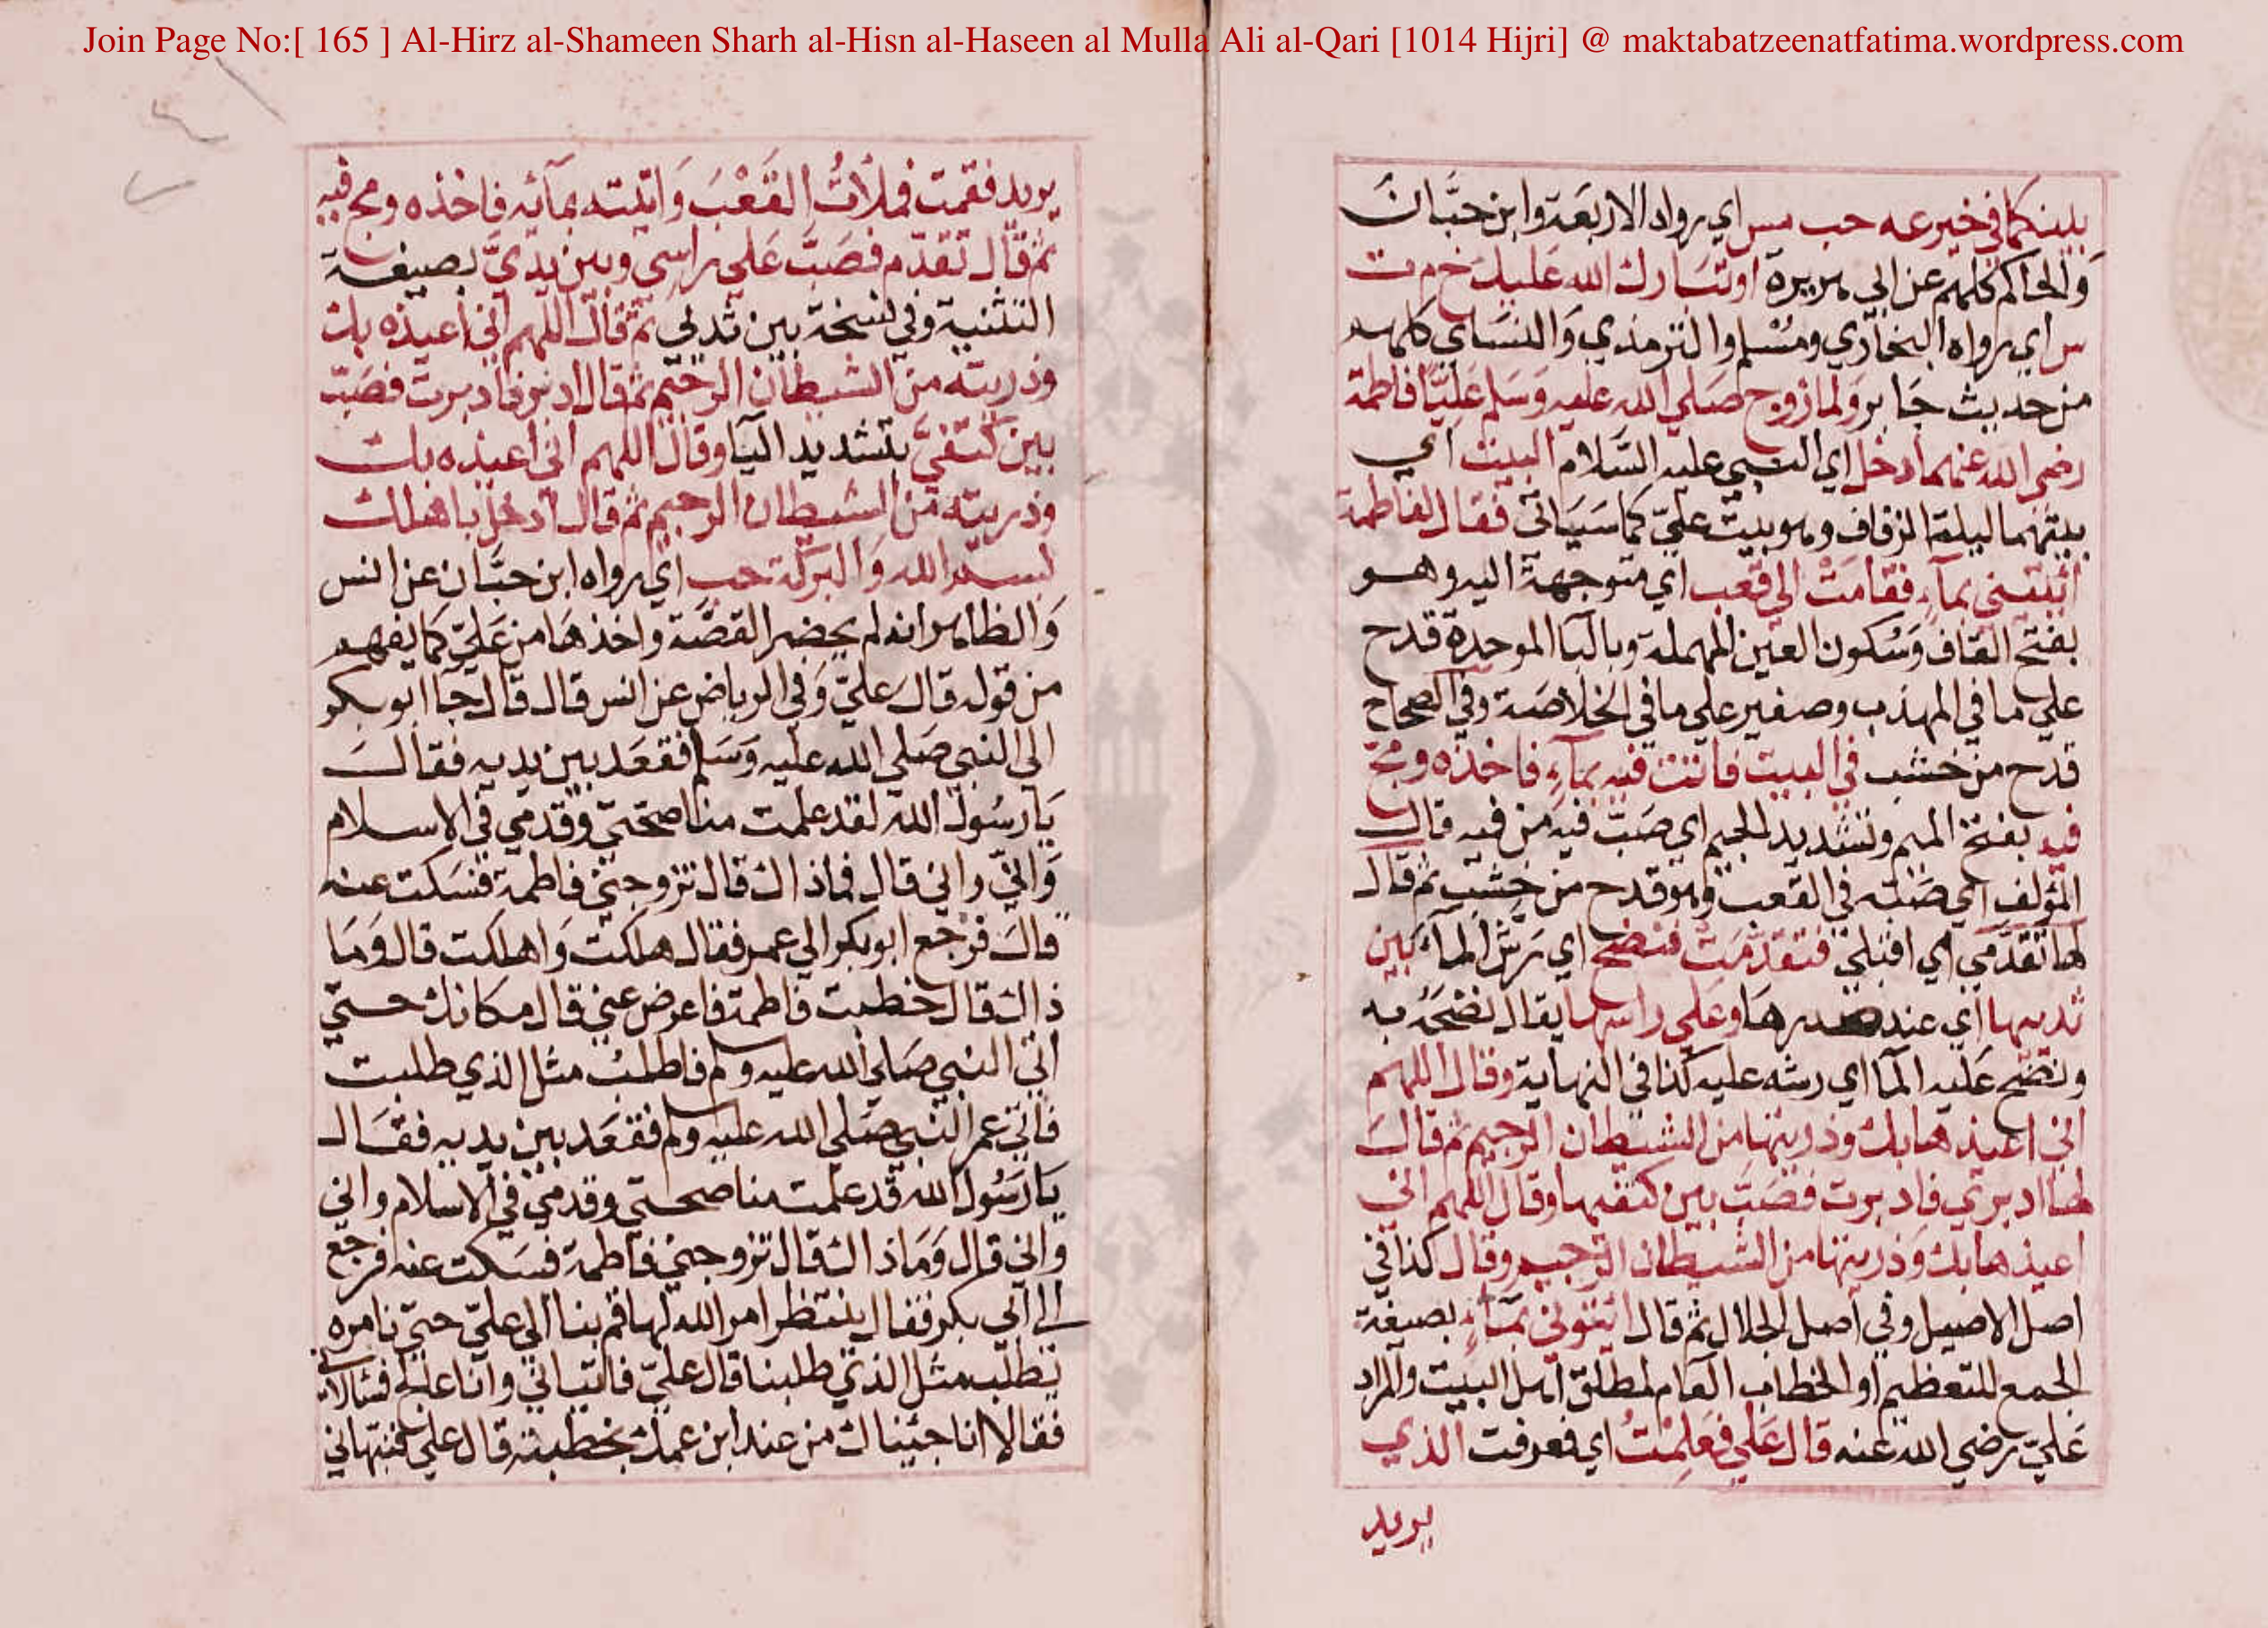 Join Page No:[ 165 ] Al-Hirz al-Shameen Sharh al-Hisn al-Haseen al Mulla Ali al-Qari [1014 Hijri] @ maktabatzeenatfatima.wordpress.com
بينكما في خير عه حب مس اي رواه الاربعة وابن حبَّان
وَالحاكم كلهم عن ابي هريرة او تبَارك الله عَليك خ م ت
س اي رواه البخاري ومُسْلم والترمذي وَالنسَاي كلهم
من حديث جَابر وَلما زوج صَلي الله عليه وَسَلم عَليًّا فاطمة
رضي الله عنهما دخل اي النبي عليه السَّلام البيت اي
بيتهما ليلة الزفاف وهو بيت عليّ كما سَيَاتي فقال لفاطمة
ائتيني بمآءٍ فقامَتْ الي قعب اي متوجهة اليه وهو
بفتح القاف وَسُكون العين المهملة وبالبا الموحدة قدح
علي ما في المهذب وصغير علي ما في الخلاصَة وفي الصحاح
قدح من خشب في البيت فاتت فيه بمآءٍ فاخذه ومجّ
فيه بفتح الميم وتشديد الجيم اي صَبّ فيه من فيه قال
المؤلف اي صَبّه في القعب وهو قدح من خشب ثم قال
لها تقدّمي اي اقبلي فتقدّمَتْ فنضح اي رَشّ المآء بَين
ثدييها اي عند صدرهَا وعَلي راسها يقال نضحَه به
ونضح عَليه المآ اي رشه عليه كذا في النهاية وقال اللهم
اني اعيذها بك وذريتها من الشيطان الرجيم ثم قالَ
لها ادبري فادبرت فصَبّ بين كتفيها وقال اللهم اني
اعيذها بك وَذريتها من الشيطان الرجيم وقال كذا في
اصل الاصيل وفي اصل الجلال ثم قال ايتوني بمَآءٍ بصيغة
الجمع للتعظيم او الخطاب العَام لمطلق اهل البيت والمراد
عَليّ رضي الله عنه قال عَلي فعَلِمْتُ اي فعرفت الذي
يريد
يريد فقمت فملأتُ القَعْبَ وَاتيته بمآئه فاخذه ومج فيه
ثم قال تقدّم فصَبَّ عَلي راسِي وبين يَديَّ بصيغة
التثنية وفي نسخة بين ثديي ثم قال اللهم اني اعيذه بك
وذريته من الشيطان الرجيم ثم قال ادبر فادبرت فصَبّ
بين كتفيَّ بتشديد اليآ وقال اللهم اني اعيذه بك
وذريته من الشيطان الرجيم ثم قال ادخل باهلك
بسم الله وَالبركة حب اي رواه ابن حبَّان عن انس
وَالظاهر انه لم يحضر القصَّة واخذهَا من عَليّ كما يفهم
من قوله قالَ عليّ وَفي الرياض عن انس قال قال جآ ابو بكر
الي النبي صَلي الله عليه وَسَلم فقعَد بين يديه فقالَ
يَا رسُول الله لقد علمت مناصحتي وقدمي في الاسلام
وَاني واني قال فما ذاك قال تزوجني فاطمة فسَكت عنه
قالَ فرجع ابو بكر الي عمر فقال هلكت وَاهلكت قال وَمَا
ذاك قال خطبت فاطمة فاعرض عني قال مكانك حتي
اتي النبي صَلي الله عليه وسلم فاطلبُ مثل الذي طلبت
فاتي عمر النبي صَلي الله عليه وسلم فقعَد بين يديه فقَال
يَا رَسُول الله قد علمت مناصحتي وقدمي في الاسلام واني
واني قال وَمَا ذاك قال تزوجني فاطمة فسَكت عنه فرجع
الي ابي بكر فقال ينتظر امر الله لها قم بنا الي عليّ حتي نامره
يطلب مثل الذي طلبنا قال عليّ فاتياني وانا اعالج فسيلا لي
فقالا انا جيناك من عند ابن عمك بخطبة قال علي فنبهاني